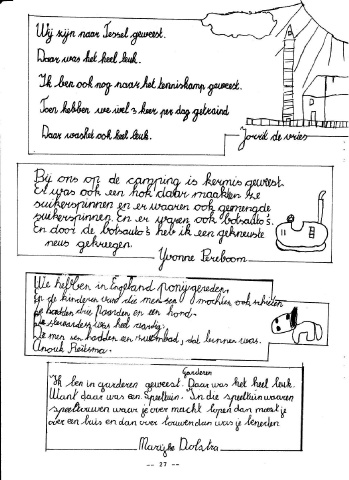 Wij zijn naar Tessel geweest.
Daar was het heel leuk.
Ik ben ook nog naar het tenniskamp geweest.
Toen hebben we wel 3 keer per dag getraind
Daar was het ook heel leuk.
Jorrit de vries
Bij ons op de camping is kermis geweest.
Er was ook een hok daar maakten ze
suikerspinnen en er waren ook gemengde
suikerspinnen. En er waren ook botsauto's.
En door de botsauto's heb ik een gekneuste
neus gekregen.
Yvonne Pereboom
We hebben in Engeland ponygereden
En de kinderen van die mensen mochten ook
Ze hadden drie Paarden en een hond.
was heel aardig.
De mensen hadden een zwembad, dat binnen was.
Anouk Reitsma.
Garderen
Ik ben in garderen geweest. Daar was het heel leuk.
Want daar was een Speeltuin. In die speeltuin waren
speeltouwen waar je over macht lopen dan moest je
over een huis en dan over touwen dan was je beneden
Marijke Dolstra
-- 27 --